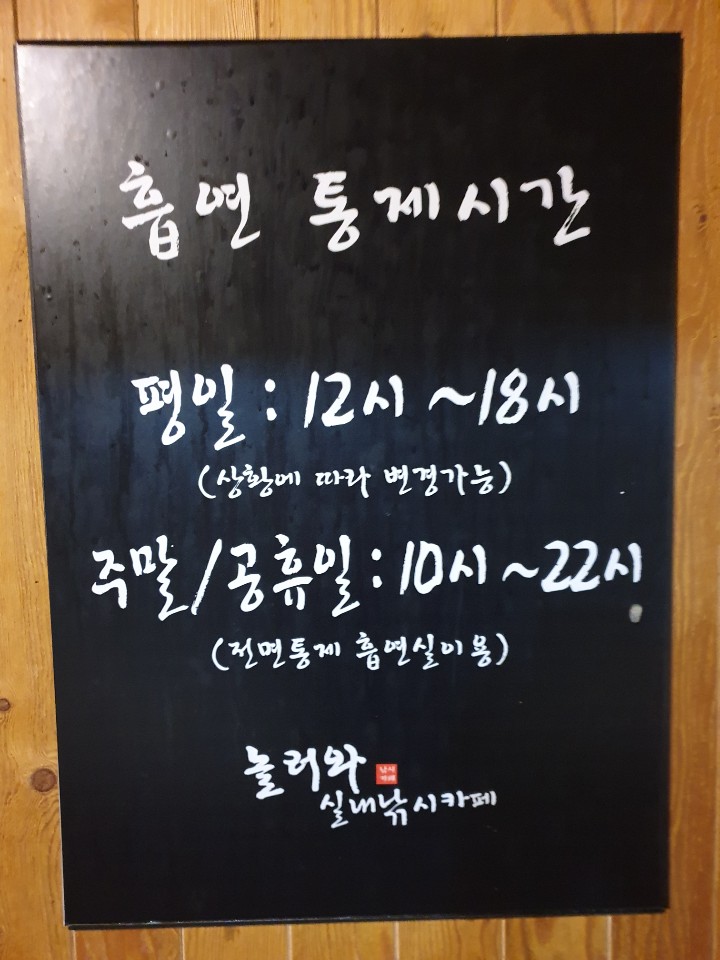 흡연 통제시간
평일 : 12시 ~18시
(상황에 따라 변경가능)
주말/공휴일 : 10시 ~22시
(전면통제 흡연실이용)
놀러와
실내낚시카페